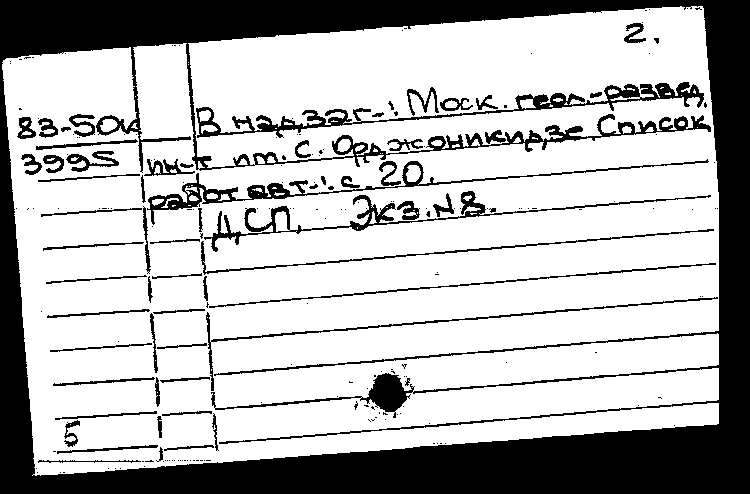 2.
83-50к В надзаг-!: Моск. геол.-развед.
3995 ин-т им. С. Орджоникидзе. Список
работ авт-!: с. 20.
ДСП. Экз. №8.
5